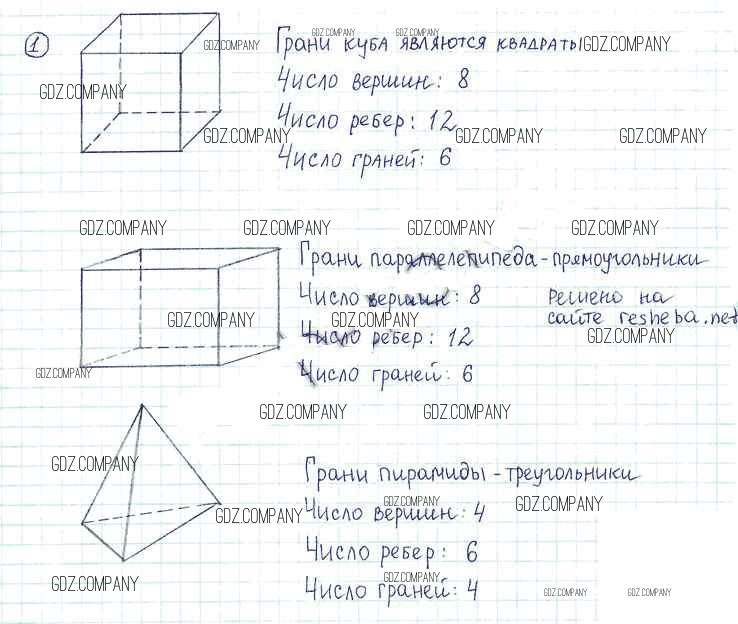 1
GDZ.COMPANY GDZ.COMPANY
GDZ.COMPANY Грани куба являются квадраты GDZ.COMPANY
GDZ.COMPANY Число вершин: 8
Число ребер: 12
GDZ.COMPANY GDZ.COMPANY GDZ.COMPANY
Число граней: 6
GDZ.COMPANY GDZ.COMPANY GDZ.COMPANY GDZ.COMPANY
Грани параллелепипеда - прямоугольники
Число вершин: 8 Решено на
GDZ.COMPANY GDZ.COMPANY сайте resheba.net
Число ребер: 12 GDZ.COMPANY
GDZ.COMPANY Число граней: 6
GDZ.COMPANY GDZ.COMPANY
GDZ.COMPANY Грани пирамиды - треугольники
GDZ.COMPANY GDZ.COMPANY
GDZ.COMPANY Число вершин: 4
Число ребер: 6
GDZ.COMPANY GDZ.COMPANY
Число граней: 4 GDZ.COMPANY GDZ.COMPANY